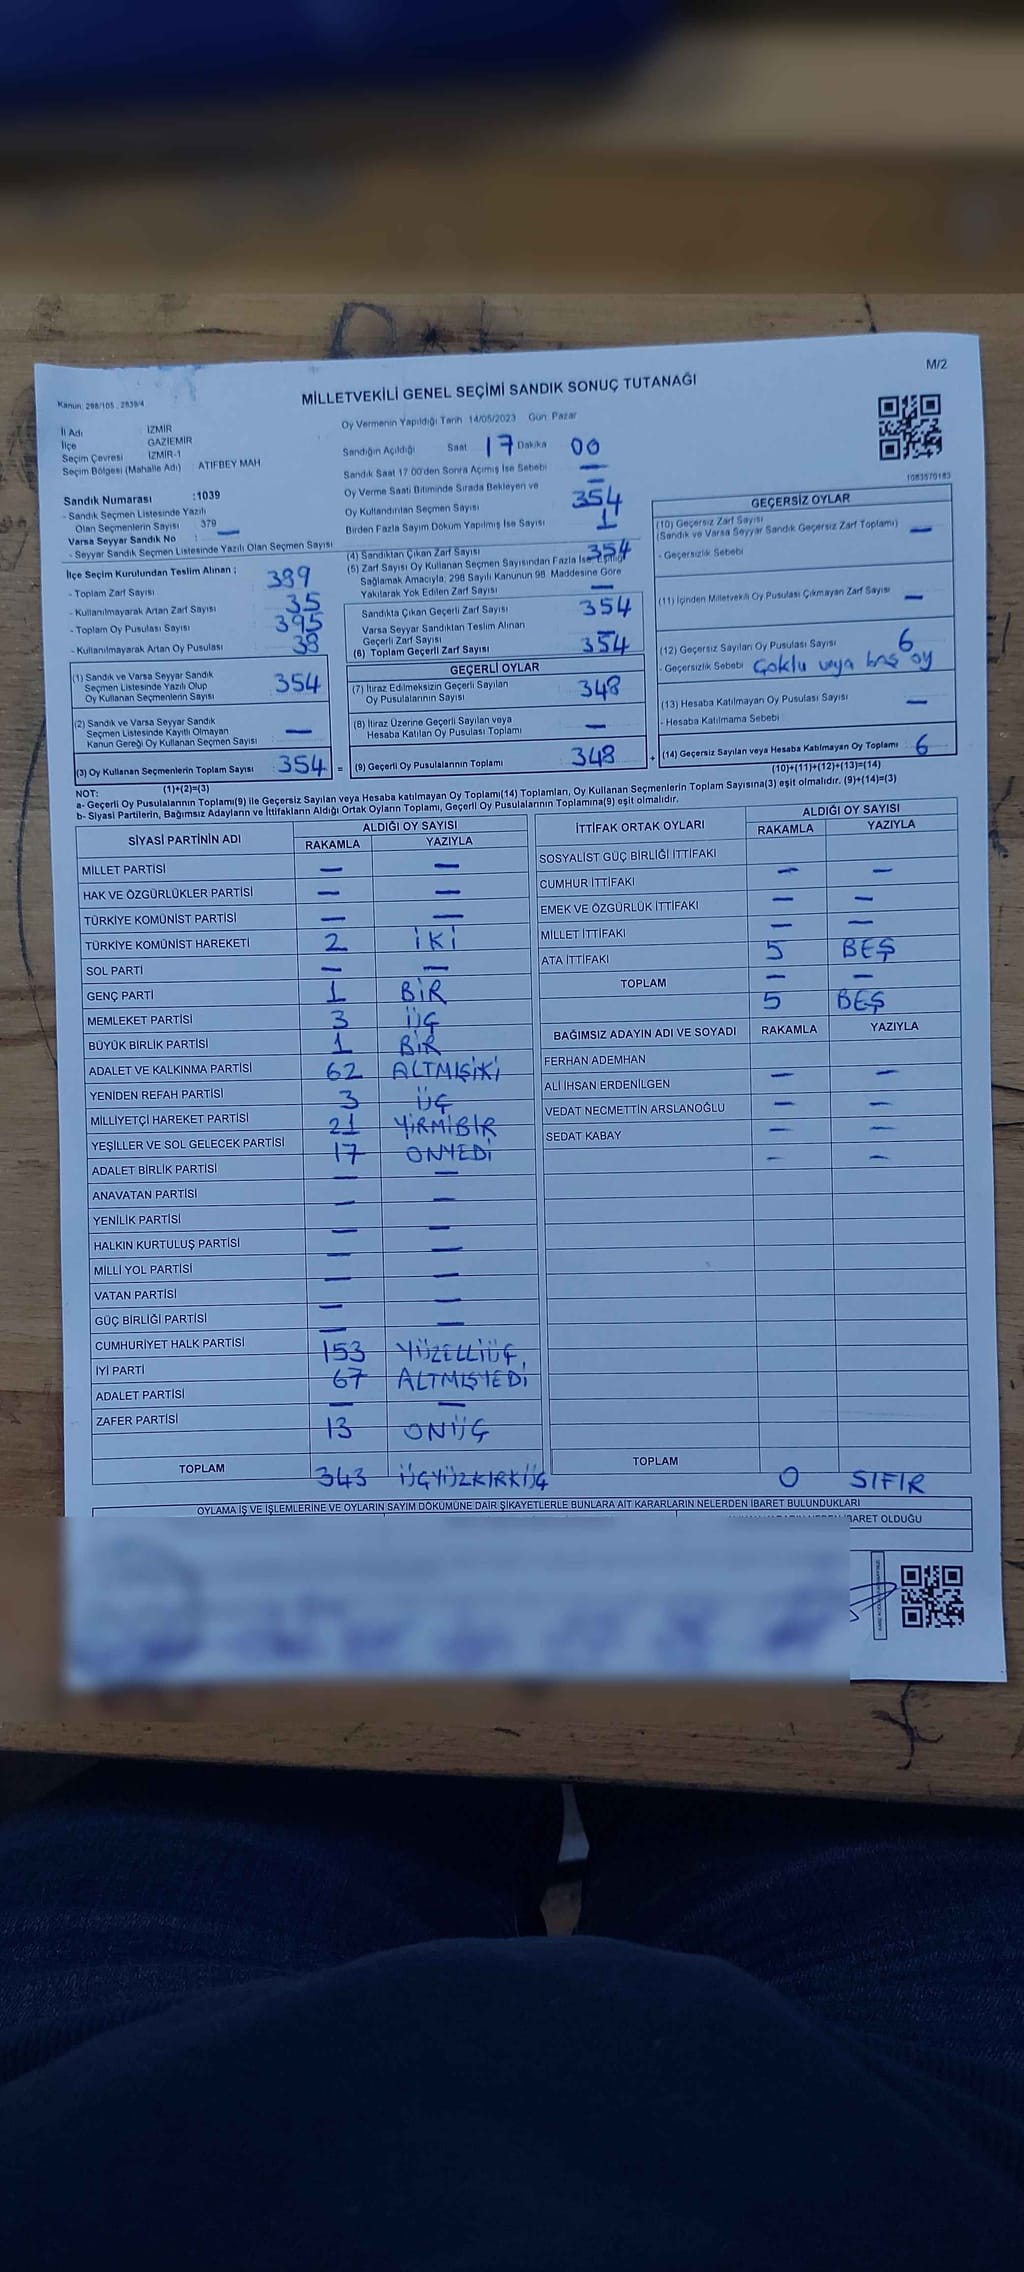 M/2
MİLLETVEKİLİ GENEL SEÇİMİ SANDIK SONUÇ TUTANAĞI
Kanun: 298/105 , 2839/4
Oy Vermenin Yapıldığı Tarih 14/05/2023 Gün: Pazar
İl Adı İZMİR
İlçe GAZİEMİR
Seçim Çevresi İZMİR-1
Seçim Bölgesi (Mahalle Adı) ATIFBEY MAH
Sandığın Açıldığı Saat 17 Dakika 00
Sandık Saat 17:00'den Sonra Açımış İse Sebebi —
Oy Verme Saati Bitiminde Sırada Bekleyen ve —
Oy Kullandırılan Seçmen Sayısı 354
Birden Fazla Sayım Döküm Yapılmış İse Sayısı 1
1083570183
Sandık Numarası :1039
- Sandık Seçmen Listesinde Yazılı
Olan Seçmenlerin Sayısı 379
Varsa Seyyar Sandık No : —
- Seyyar Sandık Seçmen Listesinde Yazılı Olan Seçmen Sayısı
İlçe Seçim Kurulundan Teslim Alınan ;
- Toplam Zarf Sayısı 389
- Kullanılmayarak Artan Zarf Sayısı 35
- Toplam Oy Pusulası Sayısı 395
- Kullanılmayarak Artan Oy Pusulası 38
(1) Sandık ve Varsa Seyyar Sandık
Seçmen Listesinde Yazılı Olup
Oy Kullanan Seçmenlerin Sayısı 354
(2) Sandık ve Varsa Seyyar Sandık
Seçmen Listesinde Kayıtlı Olmayan
Kanun Gereği Oy Kullanan Seçmen Sayısı —
(3) Oy Kullanan Seçmenlerin Toplam Sayısı 354 =
(1)+(2)=(3)
(4) Sandıktan Çıkan Zarf Sayısı 354
(5) Zarf Sayısı Oy Kullanan Seçmen Sayısından Fazla İse, Eşitliği
Sağlamak Amacıyla, 298 Sayılı Kanunun 98. Maddesine Göre
Yakılarak Yok Edilen Zarf Sayısı —
Sandıkta Çıkan Geçerli Zarf Sayısı 354
Varsa Seyyar Sandıktan Teslim Alınan
Geçerli Zarf Sayısı —
(6) Toplam Geçerli Zarf Sayısı 354
GEÇERLİ OYLAR
(7) İtiraz Edilmeksizin Geçerli Sayılan
Oy Pusulalarının Sayısı 348
(8) İtiraz Üzerine Geçerli Sayılan veya
Hesaba Katılan Oy Pusulası Toplamı —
(9) Geçerli Oy Pusulalarının Toplamı 348 +
GEÇERSİZ OYLAR
(10) Geçersiz Zarf Sayısı
(Sandık ve Varsa Seyyar Sandık Geçersiz Zarf Toplamı) —
- Geçersizlik Sebebi
(11) İçinden Milletvekili Oy Pusulası Çıkmayan Zarf Sayısı —
(12) Geçersiz Sayılan Oy Pusulası Sayısı 6
- Geçersizlik Sebebi Çoklu veya boş oy
(13) Hesaba Katılmayan Oy Pusulası Sayısı —
- Hesaba Katılmama Sebebi
(14) Geçersiz Sayılan veya Hesaba Katılmayan Oy Toplamı 6
(10)+(11)+(12)+(13)=(14)
NOT:
a- Geçerli Oy Pusulalarının Toplamı(9) ile Geçersiz Sayılan veya Hesaba katılmayan Oy Toplamı(14) Toplamları, Oy Kullanan Seçmenlerin Toplam Sayısına(3) eşit olmalıdır. (9)+(14)=(3)
b- Siyasi Partilerin, Bağımsız Adayların ve İttifakların Aldığı Ortak Oyların Toplamı, Geçerli Oy Pusulalarının Toplamına(9) eşit olmalıdır.
SİYASİ PARTİNİN ADI ALDIĞI OY SAYISI
RAKAMLA YAZIYLA
MİLLET PARTİSİ — —
HAK VE ÖZGÜRLÜKLER PARTİSİ — —
TÜRKİYE KOMÜNİST PARTİSİ — —
TÜRKİYE KOMÜNİST HAREKETİ 2 İKİ
SOL PARTİ — —
GENÇ PARTİ 1 BİR
MEMLEKET PARTİSİ 3 ÜÇ
BÜYÜK BİRLİK PARTİSİ 1 BİR
ADALET VE KALKINMA PARTİSİ 62 ALTMIŞİKİ
YENİDEN REFAH PARTİSİ 3 ÜÇ
MİLLİYETÇİ HAREKET PARTİSİ 21 YİRMİBİR
YEŞİLLER VE SOL GELECEK PARTİSİ 17 ONYEDİ
ADALET BİRLİK PARTİSİ — —
ANAVATAN PARTİSİ — —
YENİLİK PARTİSİ — —
HALKIN KURTULUŞ PARTİSİ — —
MİLLİ YOL PARTİSİ — —
VATAN PARTİSİ — —
GÜÇ BİRLİĞİ PARTİSİ — —
CUMHURİYET HALK PARTİSİ 153 YÜZELLİÜÇ
İYİ PARTİ 67 ALTMIŞYEDİ
ADALET PARTİSİ — —
ZAFER PARTİSİ 13 ONÜÇ
TOPLAM 343 ÜÇYÜZKIRKÜÇ
İTTİFAK ORTAK OYLARI ALDIĞI OY SAYISI
RAKAMLA YAZIYLA
SOSYALİST GÜÇ BİRLİĞİ İTTİFAKI — —
CUMHUR İTTİFAKI — —
EMEK VE ÖZGÜRLÜK İTTİFAKI — —
MİLLET İTTİFAKI 5 BEŞ
ATA İTTİFAKI — —
TOPLAM 5 BEŞ
BAĞIMSIZ ADAYIN ADI VE SOYADI RAKAMLA YAZIYLA
FERHAN ADEMHAN — —
ALİ İHSAN ERDENİLGEN — —
VEDAT NECMETTİN ARSLANOĞLU — —
SEDAT KABAY — —
TOPLAM 0 SIFIR
OYLAMA İŞ VE İŞLEMLERİNE VE OYLARIN SAYIM DÖKÜMÜNE DAİR ŞİKAYETLERLE BUNLARA AİT KARARLARIN NELERDEN İBARET BULUNDUKLARI
İBARET OLDUĞU